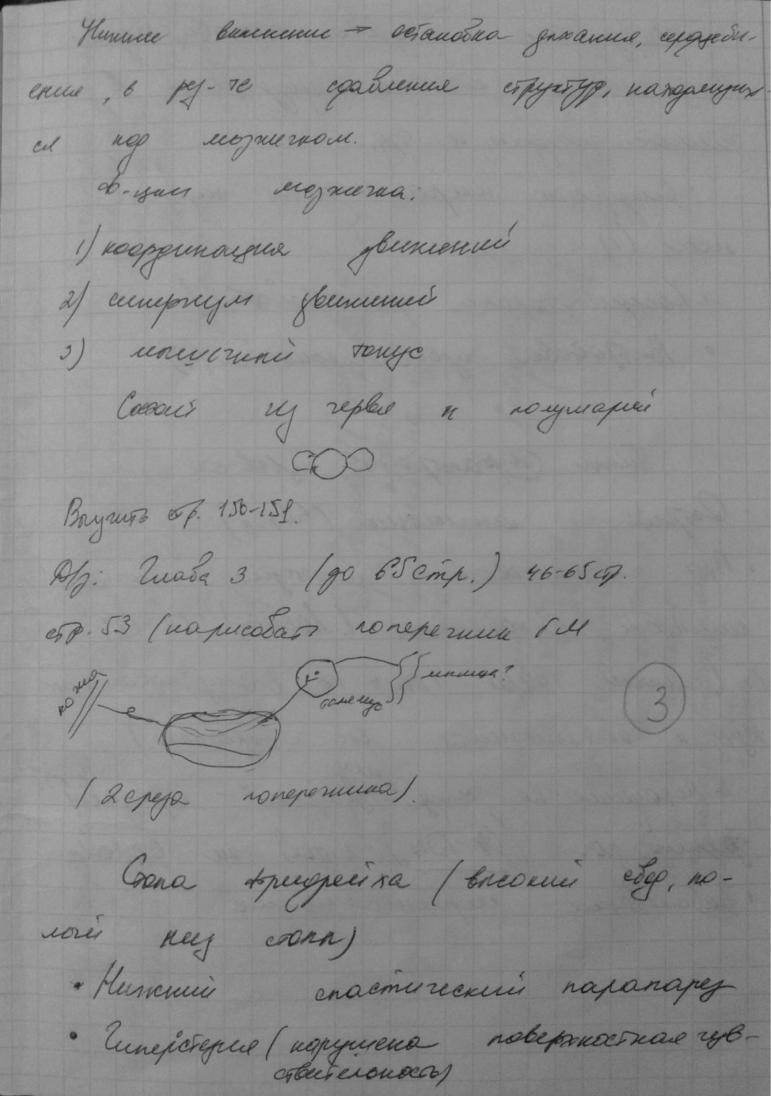 Нижнее вклинение → остановка дыхания, сердцеби-
ения, в рез-те сдавления структур, находящих-
ся под мозжечком.
Ф-ции мозжечка.
1) координация движений
2) синергизм движений
3) мышечный тонус
Состоит из червя и полушарий
Выучить стр. 150-151.
Д/з: Глава 3 (до 65 стр.) 46-65 стр.
стр. 53 (нарисовать поперечник ГМ
кожа
таламус
мышца?
3
(2 среза поперечника).
Стопа Фридрейха (высокий свод, по-
лый низ стопы)
• Нижний спастический парапарез
• Гиперстезия (нарушена поверхностная чув-
ствительность)